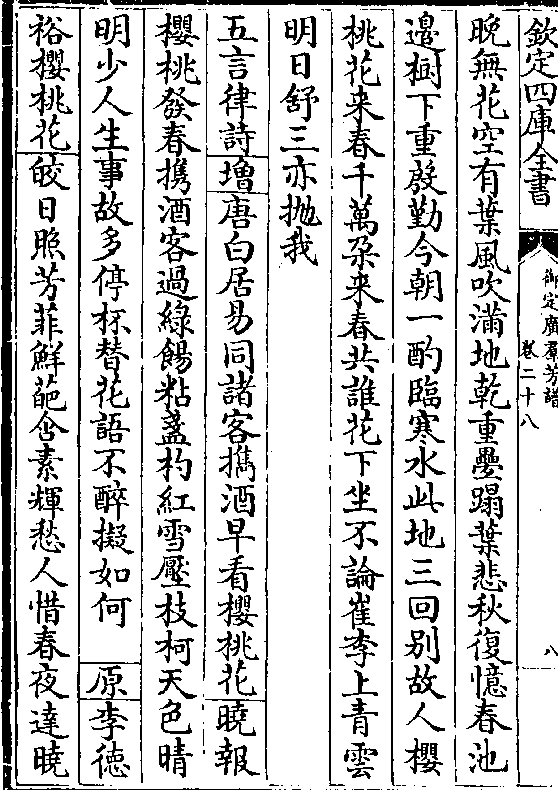 欽定四庫全書
御定廣羣芳譜
卷二十八
八
晚無花空有葉風吹滿地乾重疊蹋葉悲秋復憶春池
邉樹下重殷勤今朝一酌臨寒水此地三回别故人櫻
桃花来春千萬朶来春共誰花下坐不論崔李上青雲
明日舒三亦抛我
五言律詩增唐白居易同諸客攜酒早看櫻桃花曉報
櫻桃發春携酒客過綠餳粘盞杓紅雪壓枝柯天色晴
明少人生事故多停杯替花語不醉擬如何 原李德
裕櫻桃花皎日照芳菲鮮葩含素輝愁人惜春夜達曉